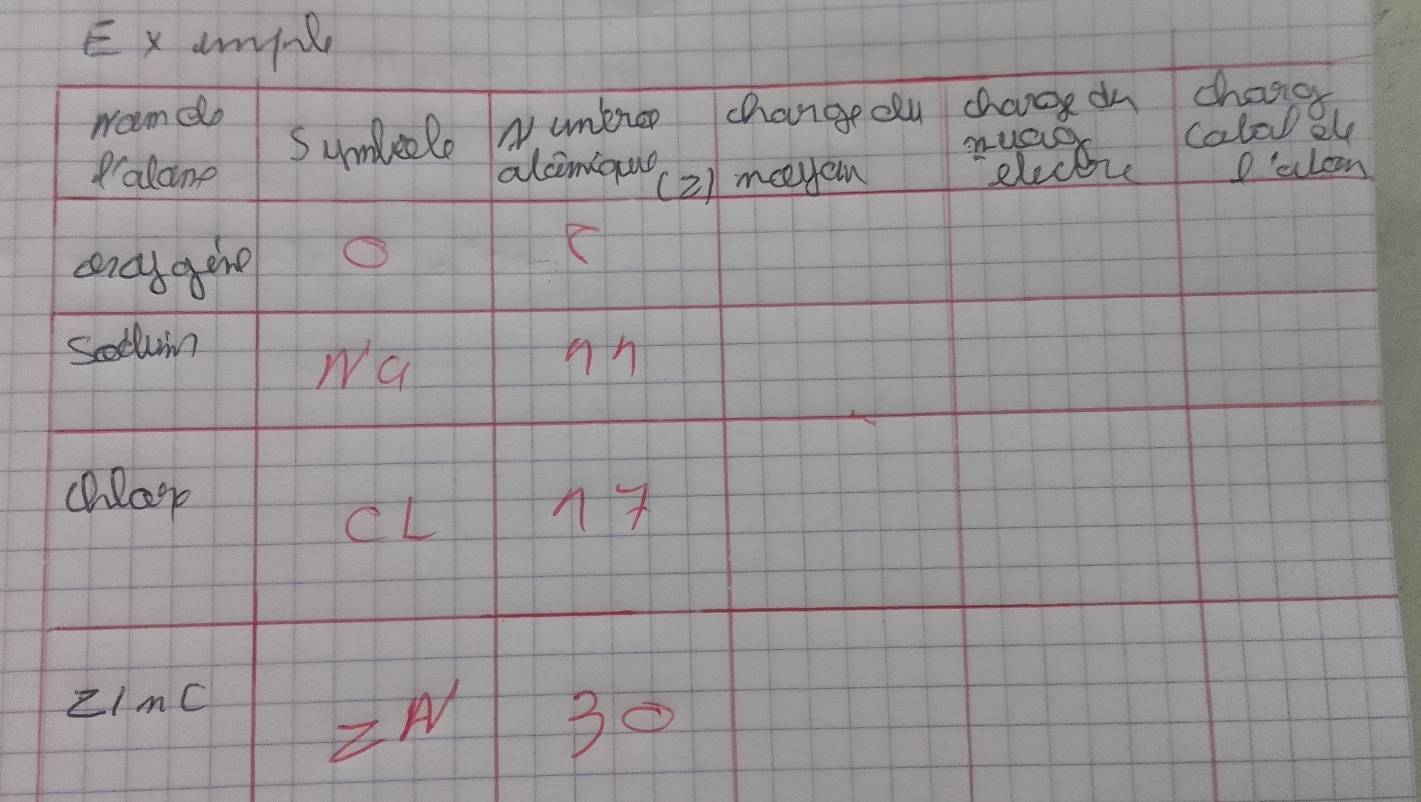 Exemple
Nom de l'atome
Symbole
Numéro atomique (Z)
charge du noyau
charge du nuage électro
charg total de l'atom
oxygène
O
Sodium
Na
11
Chlore
CL
17
ZinC
ZN
30